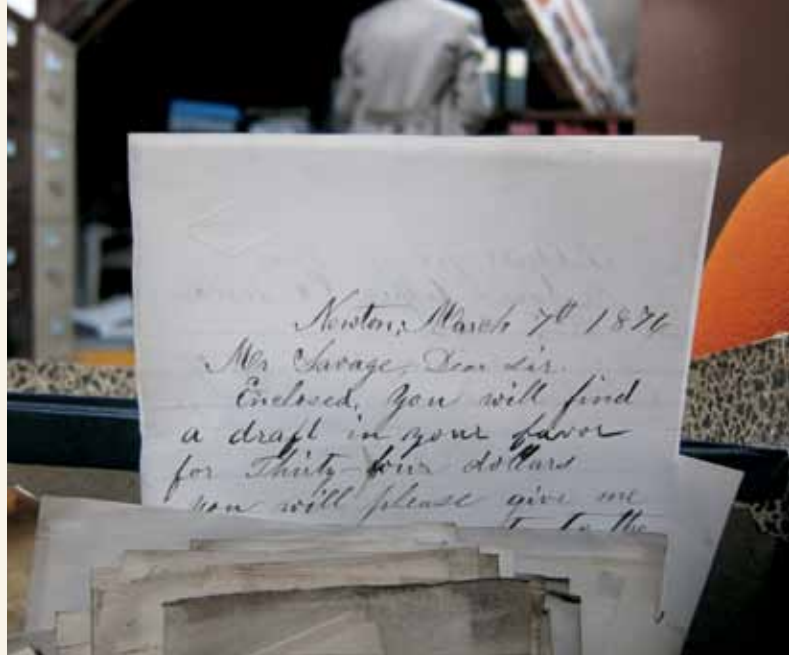 Newton, March 7th 1876
Mr Savage, Dear Sir.
Enclosed, you will find
a draft in your favor
for Thirty-four dollars
you will please give me
to the